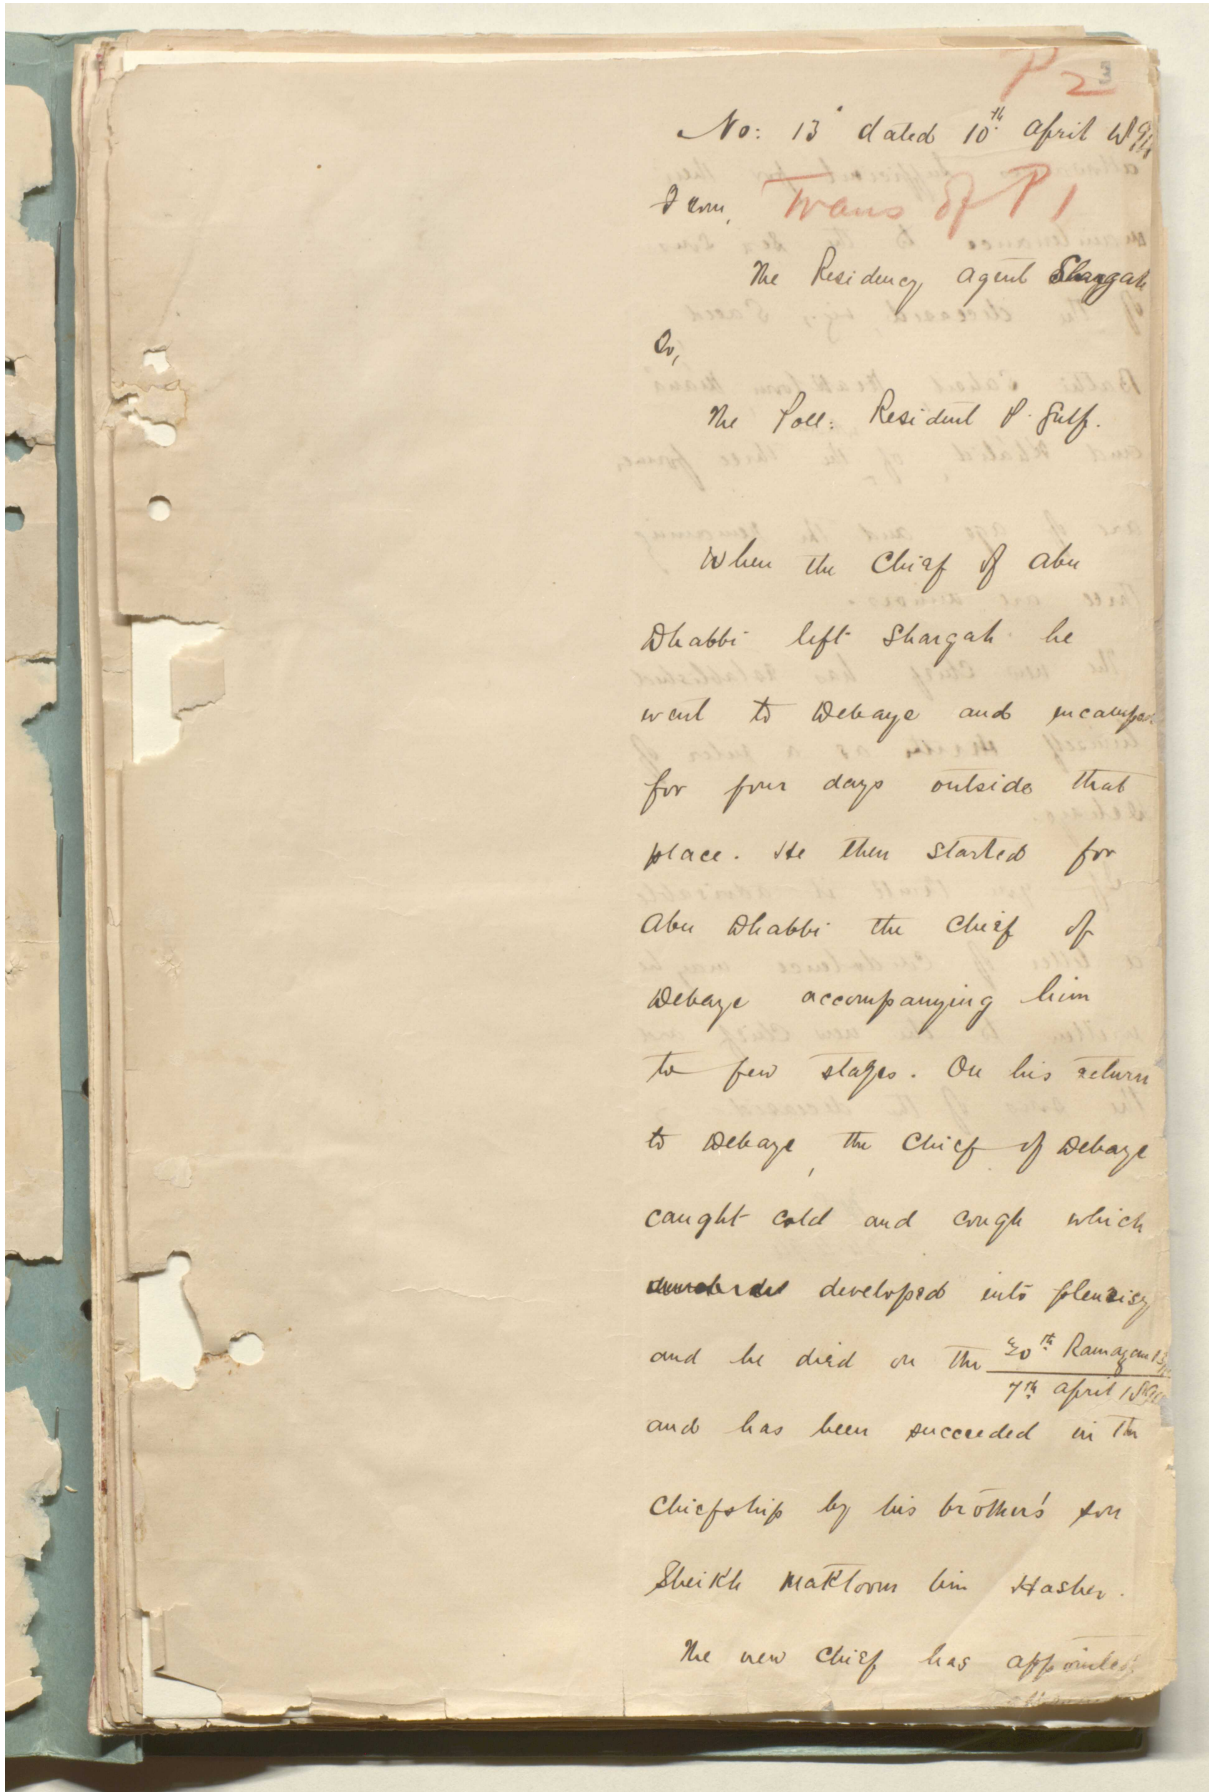 P 2
3
No: 13 dated 10th April 1894
From, Trans of P 1
The Residency Agent Shargah
To,
The Poll: Resident P. Gulf.
When the Chief of Abu
Dhabbi left Shargah he
went to Debaye and encamped
for four days outside that
place. He then started for
Abu Dhabbi the Chief of
Debaye accompanying him
to few stages. On his return
to Debaye, the Chief of Debaye
caught cold and cough which
developed into pleurisy
and he died on the 30th Ramazan
7th April 189
and has been succeeded in the
Chiefship by his brother's son
Sheikh Maktoom bin Hasher.
The new Chief has appointed